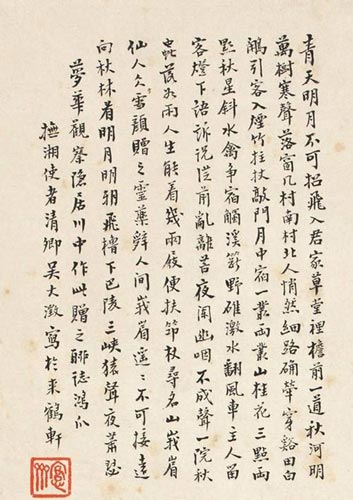 青天明月不可招飛入君家草堂裡檐前一道秋河明
萬樹寒聲落窗几村南村北人悄然細路确犖穿谿田白
鷴引客入煙竹拄杖敲門月中宿一叢兩叢山桂花三點兩
點秋星斜水禽爭宿鬧溪籪野碓激水翻風車主人留
客燈下語訴說從前亂離苦夜闌幽咽不成聲一院秋
蟲如雨人生能着幾兩屐便扶笻杖尋名山峩眉
仙人久雪顏贈之靈藥辭人間峩眉遙〻不可接遠
向秋林看明月明朝飛艪下巴陵三峽猿聲夜蕭瑟
夢華觀察隱居川中作此贈之聊誌鴻爪
撫湘使者清卿吳大澂寫於來鶴軒